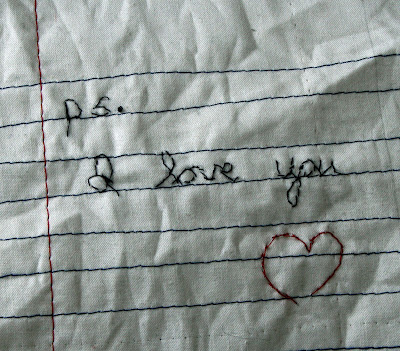 ps.
I love you